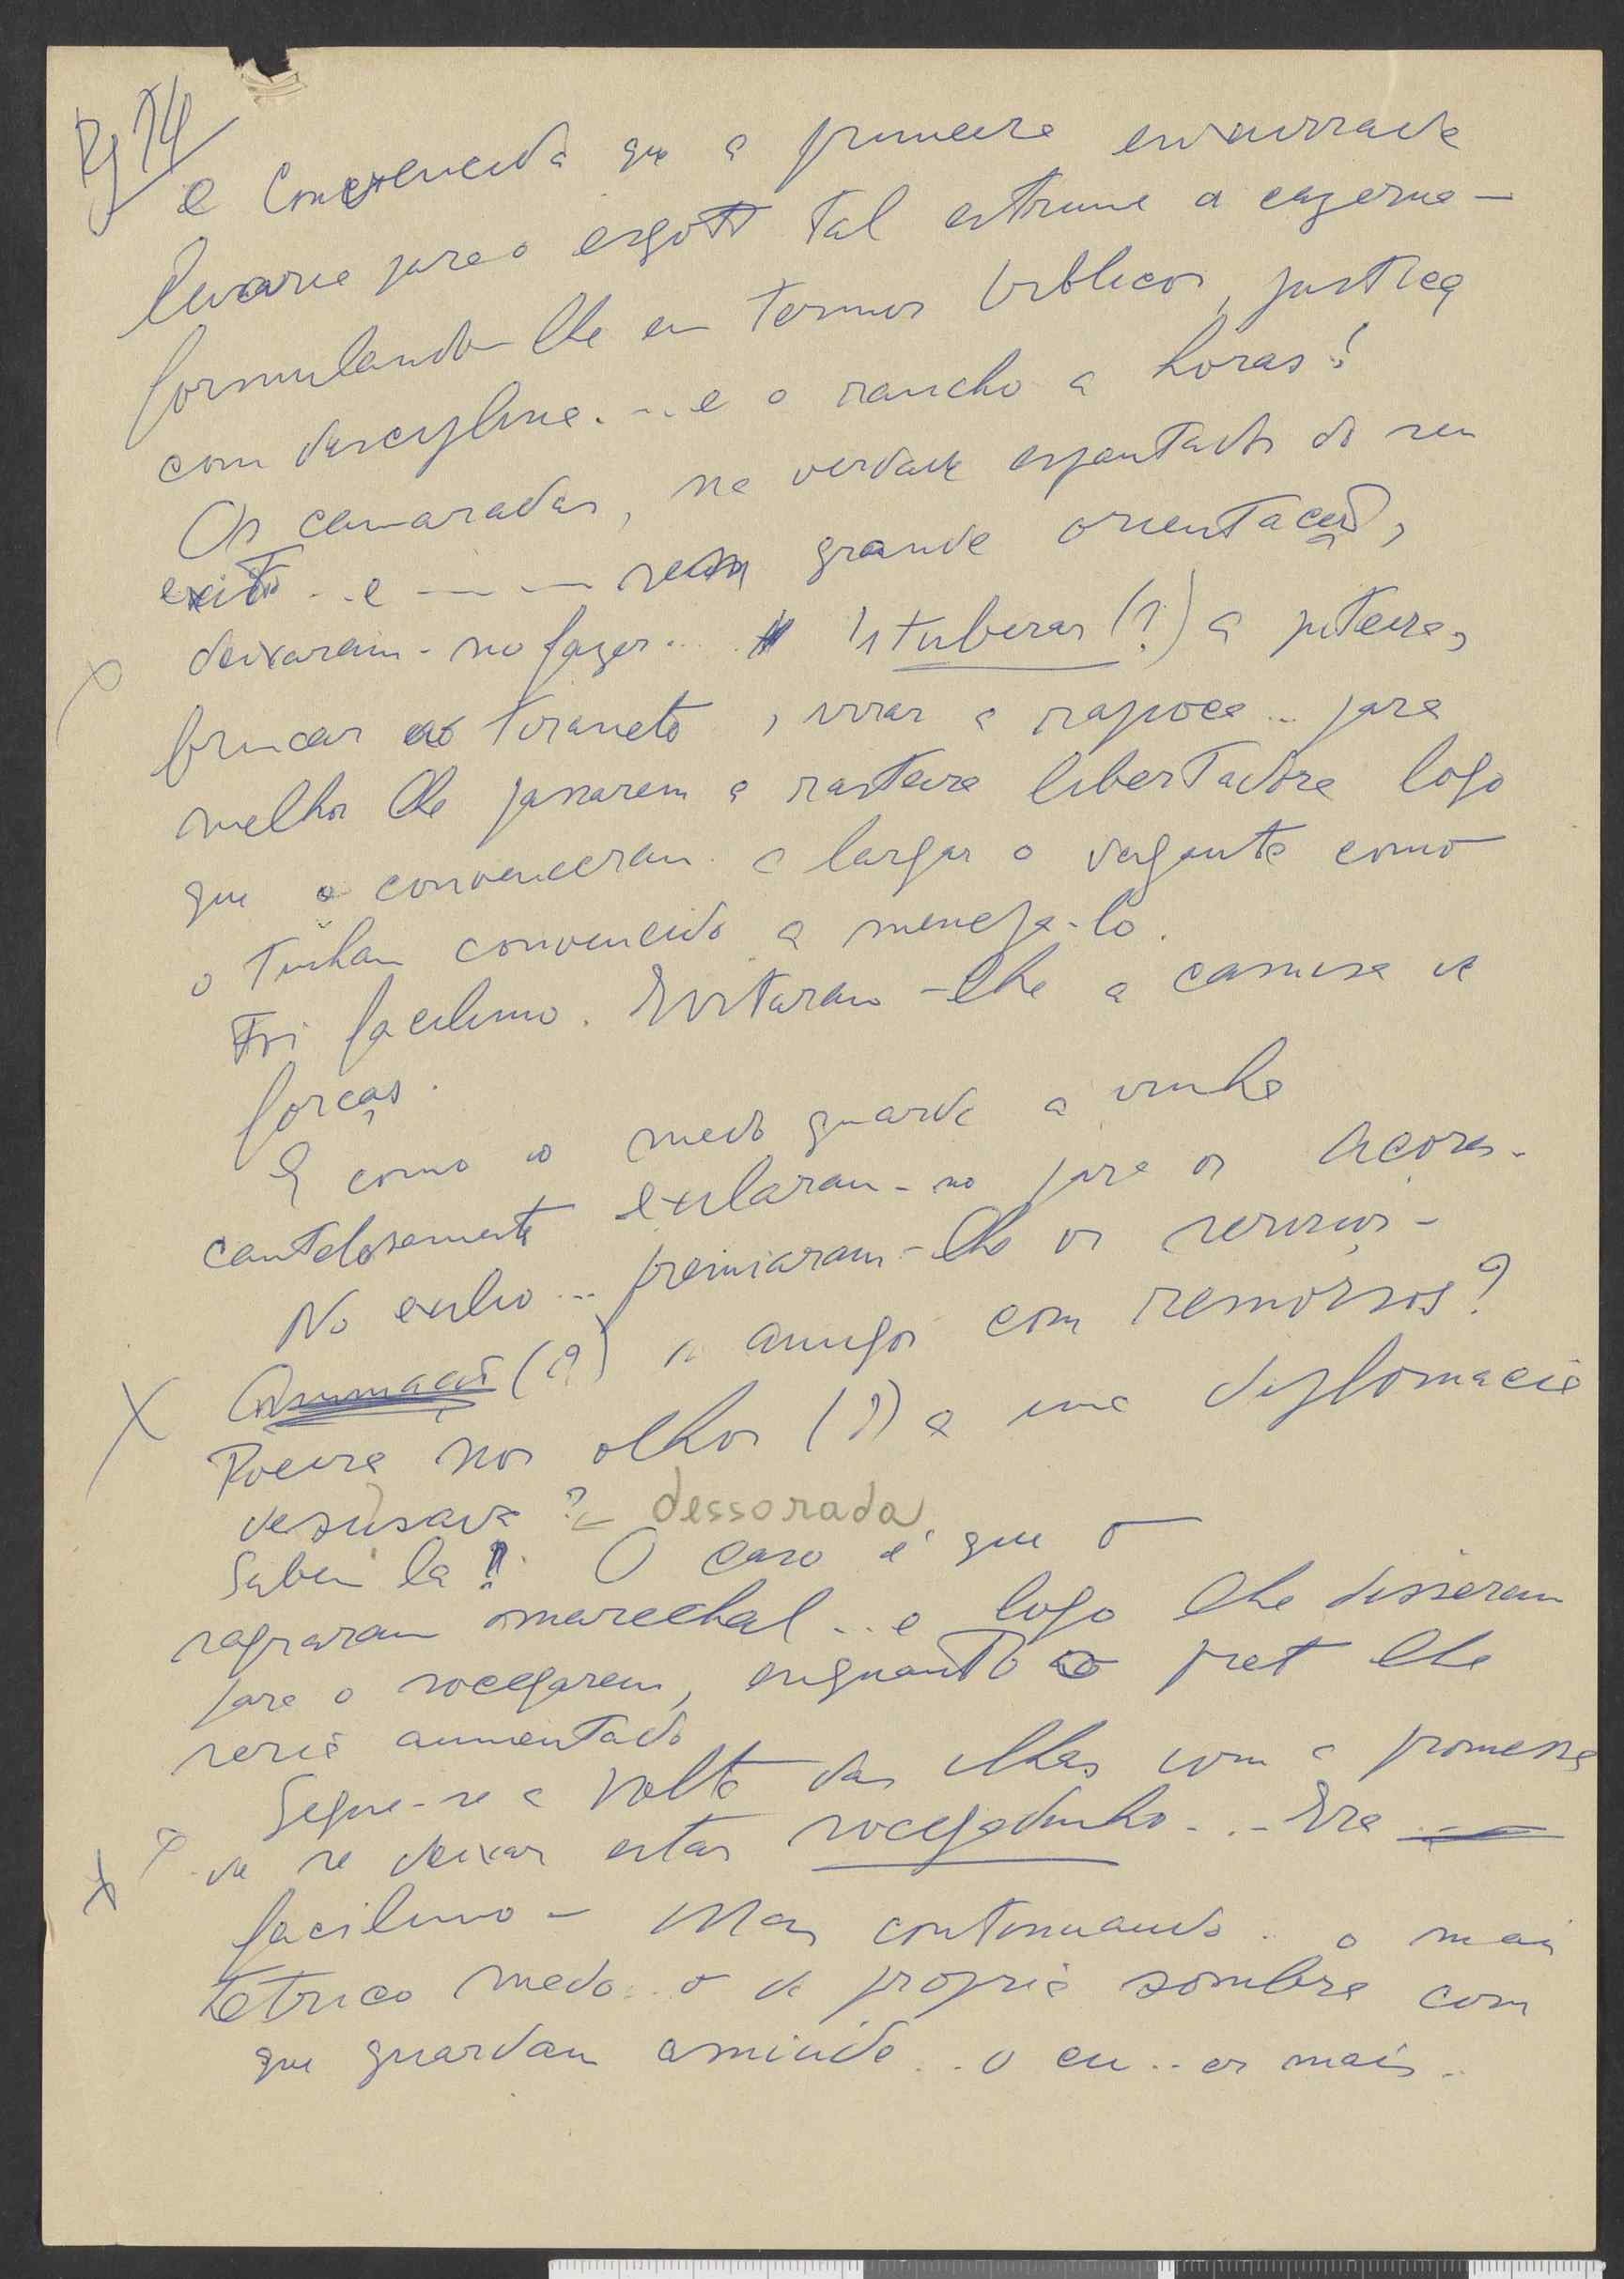 Pg 14
e convencida que a primeira enxurrada
levaria para o esgoto tal estrume à caserna -
formulando-lhe em termos biblicos, justiça
com disciplina... e o rancho a horas!
Os camaradas, na verdade espantados do seu
exito .. e — — — sem grande orientação,
deixaram-no fazer... Istuberar (?) a piteira,
brincar ao tiraneto, virar a raposa .. para
melhor lhe passarem a rasteira libertadora logo
que o convenceram a largar o vergante como
o tinham convencido a maneja-lo.
Foi facilimo. Evitaram-lhe a camisa de
forças.
E como o medo guarda a vinha
cautelosamente exilaram-no para os Açores.
No exilio .. premiaram-lhe os serviços -
(?) " amigos com remorsos?
Poeira nos olhos (?) a uma diplomacia
desusada ? dessorada
Sabem la ! O caso é que o
sagraram marechal .. e logo lhe disseram
para o socegarem, enquanto o pret lhe
seria aumentado
Segue-se a volta das ilhas com a promessa
de se deixar estar socegadinho .. - Era
facilimo - Mas continuando .. o mais
tetrico medo .. o da propria sombra com
que guardam amiude .. o eu .. os mais ..